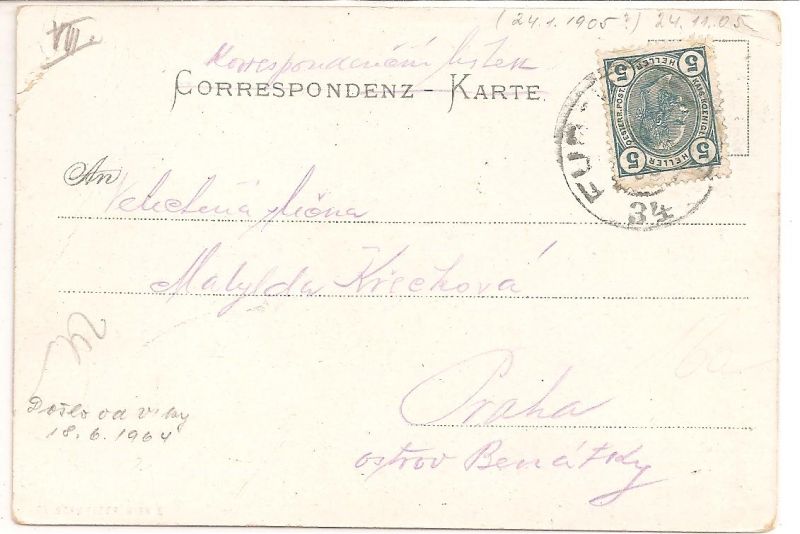 VIII.
(24.1.1905?) 24.11.05
Korrespondenční lístek
CORRESPONDENZ - KARTE.
5 HELLER 5
KAIS. KOENIGL.
OESTERR. POST.
5 HELLER 5
34
An Velectěná slečna
Matylda Křečková
Praha
ostrov Benátky
Došlo od
18. 6. 1964